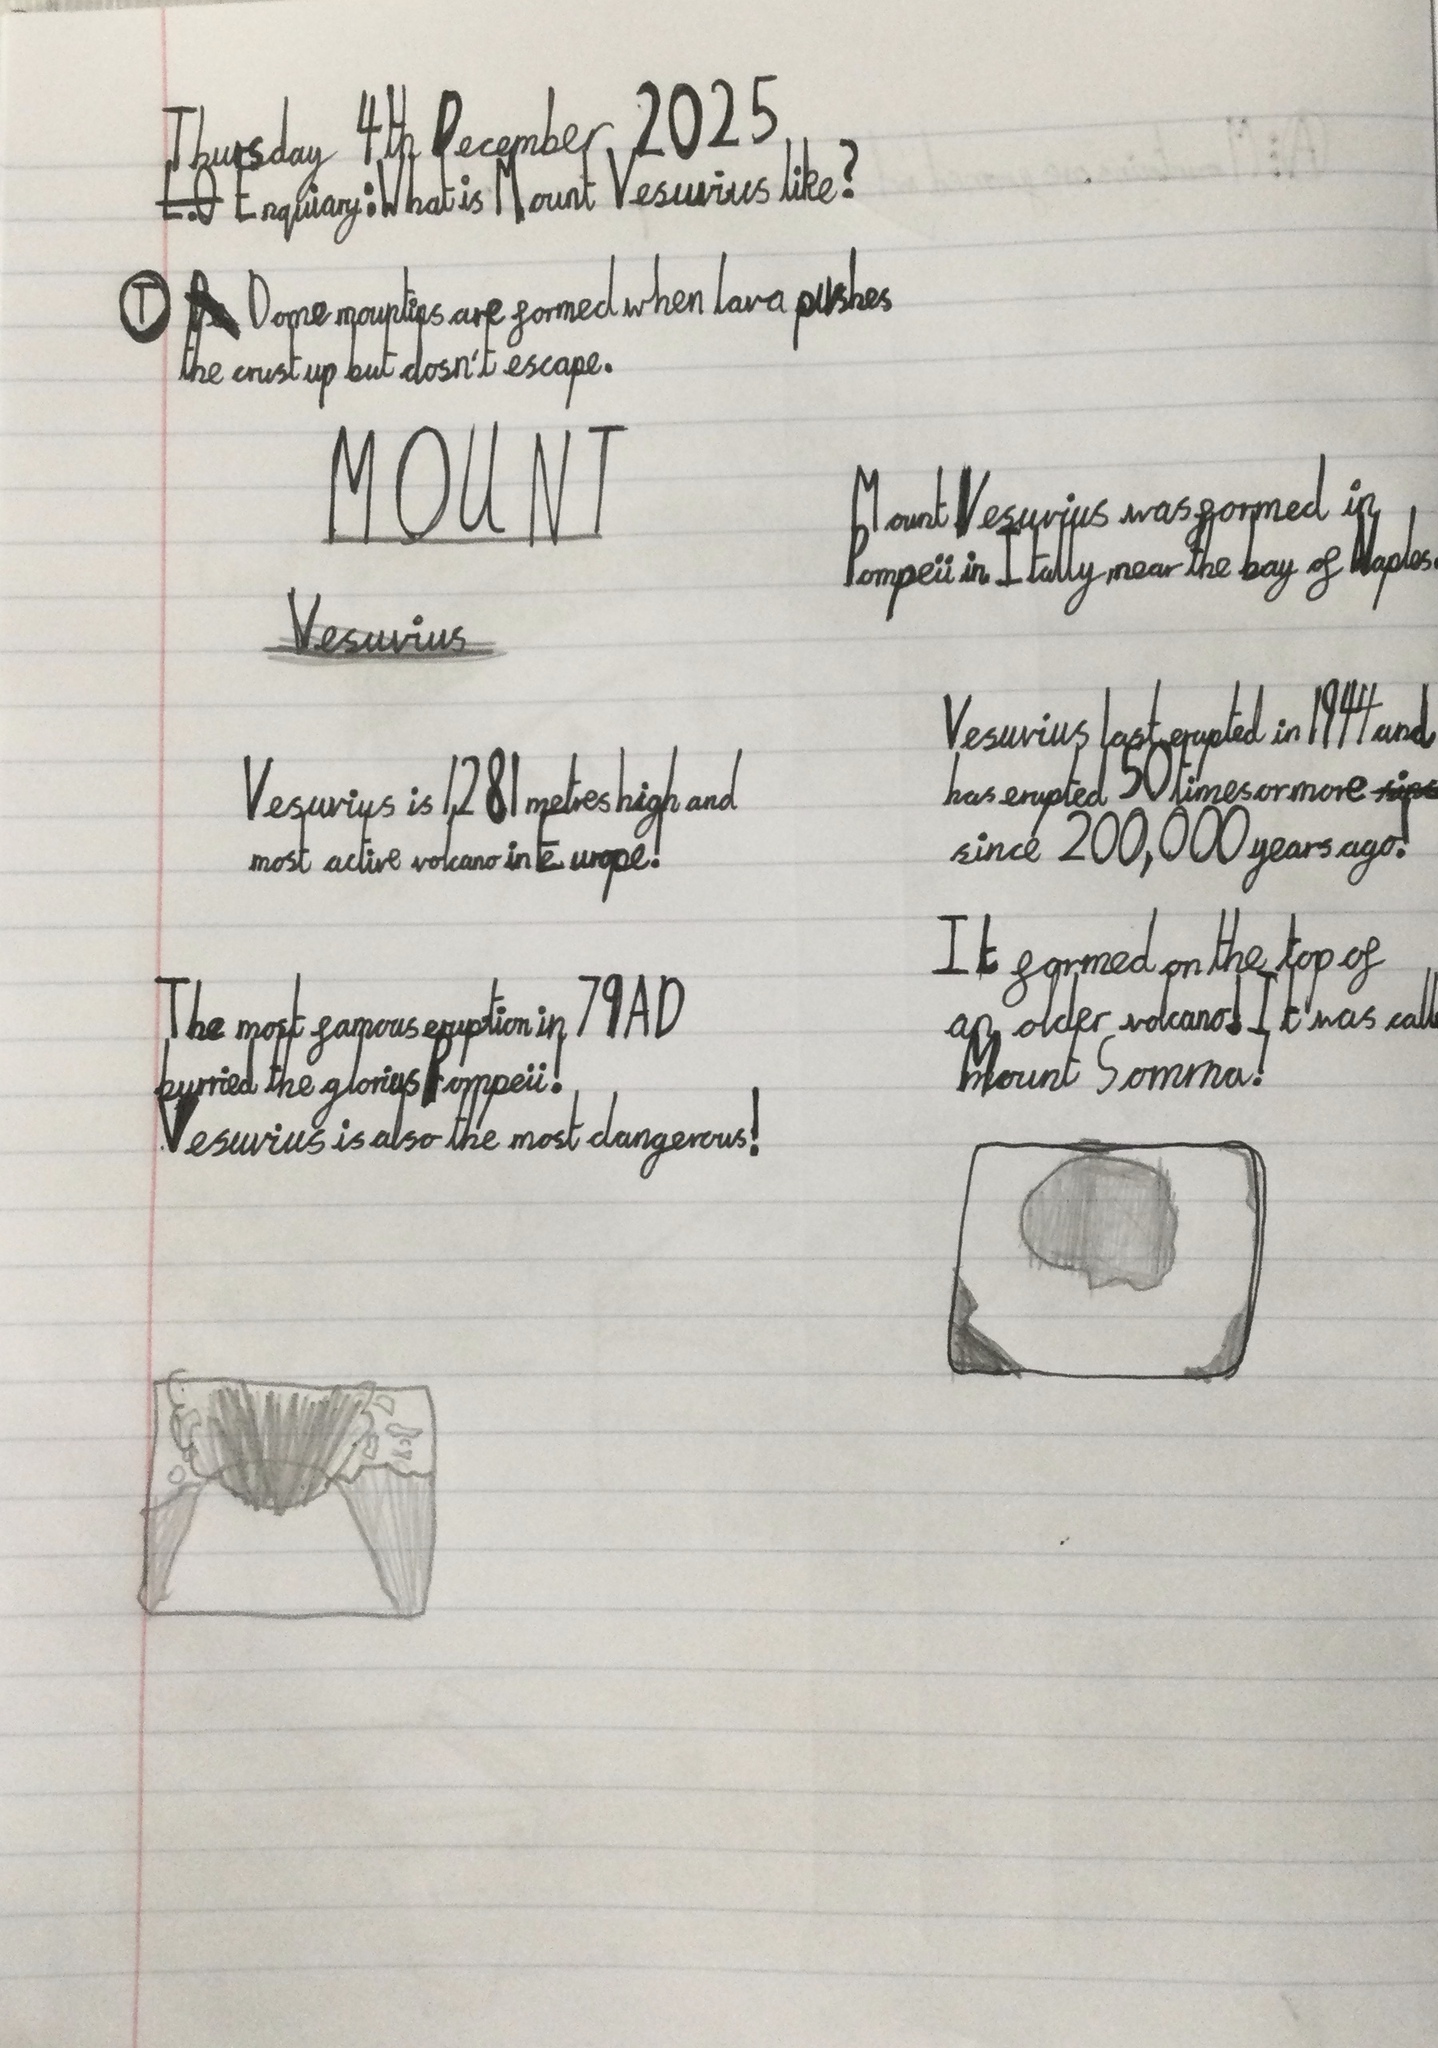 Thursday 4th December 2025
L.O Enquiary: What is Mount Vesuvius like?
T Dome mountins are formed when lava pushes
the crust up but dosn't escape.
MOUNT
Vesuvius
Mount Vesuvius was formed in
Pompeii in Itally near the bay of Naples.
Vesuvius is 1,281 metres high and
most active volcano in Europe!
Vesuvius last erupted in 1944 and
has erupted 50 times or more
since 200,000 years ago!
The most famous eruption in 79AD
burried the glorius Pompeii!
Vesuvius is also the most dangerous!
It formed on the top of
an older volcano! It was calle
Mount Somma!